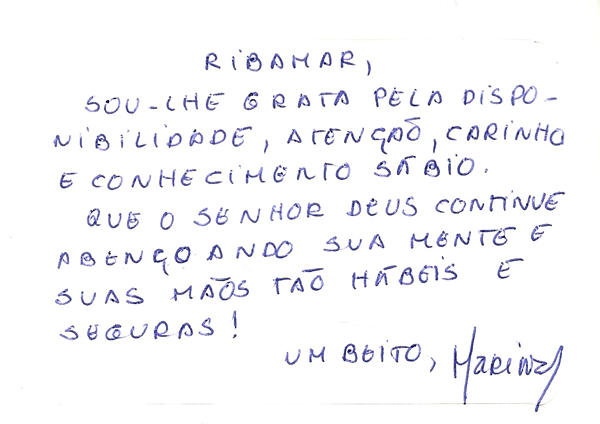 RIBAMAR,
SOU-LHE GRATA PELA DISPO-
NIBILIDADE, ATENÇÃO, CARINHO
E CONHECIMENTO SÁBIO.
QUE O SENHOR DEUS CONTINUE
ABENÇOANDO SUA MENTE E
SUAS MÃOS TÃO HÁBEIS E
SEGURAS!
UM BEITO, MARINA